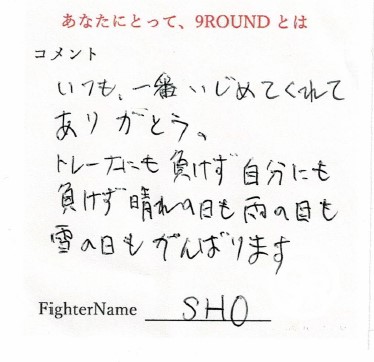 あなたにとって、9ROUND とは
コメント
いつも、一番いじめてくれて
ありがとう。
トレーナーにも負けず自分にも
負けず晴れの日も雨の日も
雪の日もがんばります
FighterName SHO